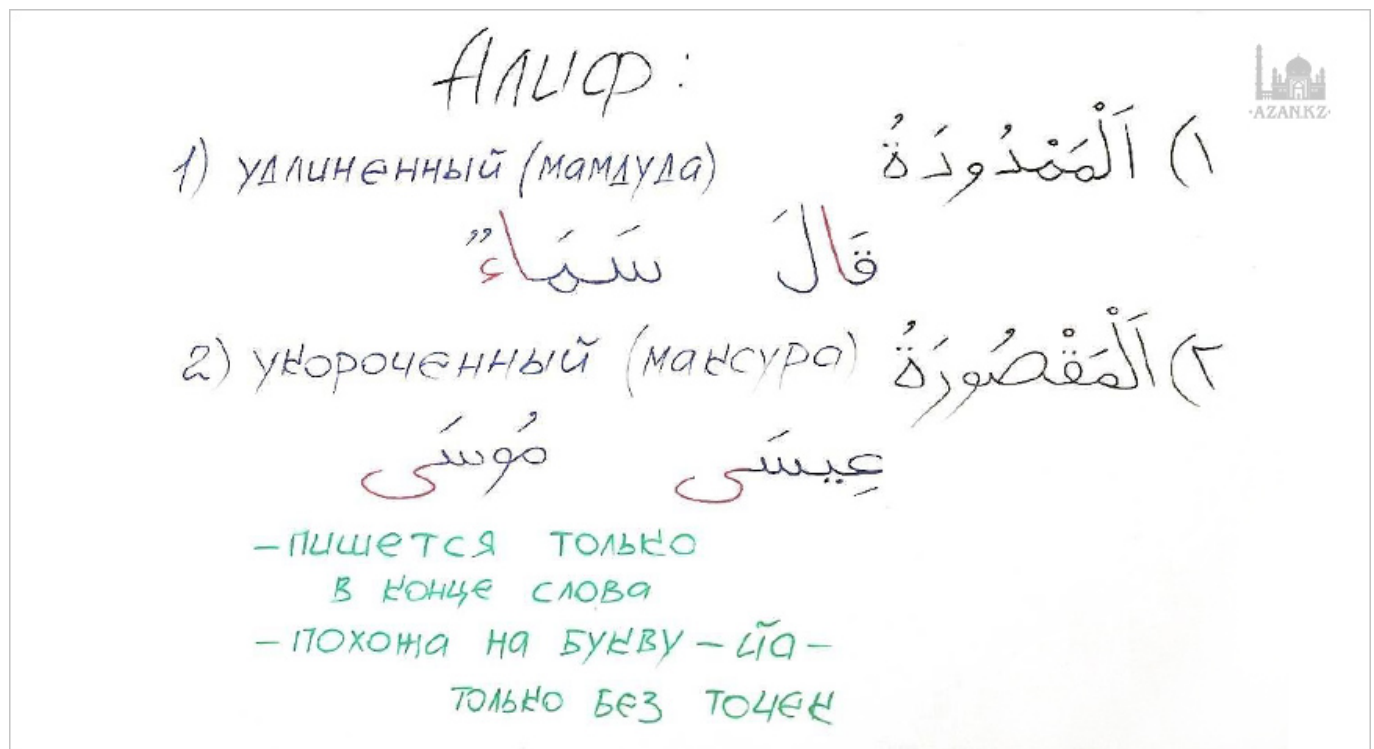 Алиф:
·AZAN.KZ·
1) удлиненный (мамдуда) ١) اَلْمَمْدُودَةُ
قَالَ سَمَاءٌ
2) укороченный (максура) ٢) اَلْمَقْصُورَةُ
عِيسَى مُوسَى
- пишется только
в конце слова
- похожа на букву - йа -
только без точек